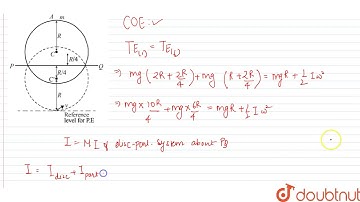 A m
R
C
P R/4 Q
R/4
C
R
Reference
level for P.E
COE:
TE(i) = TE(f)
⇒ mg (2R + 2R/4) + mg (R + 2R/4) = mgR + 1/2 Iω²
⇒ mg × 10R/4 + mg × 6R/4 = mgR + 1/2 Iω²
I = MI of disc-part. system about PQ
I = I disc + I part
doubtnut